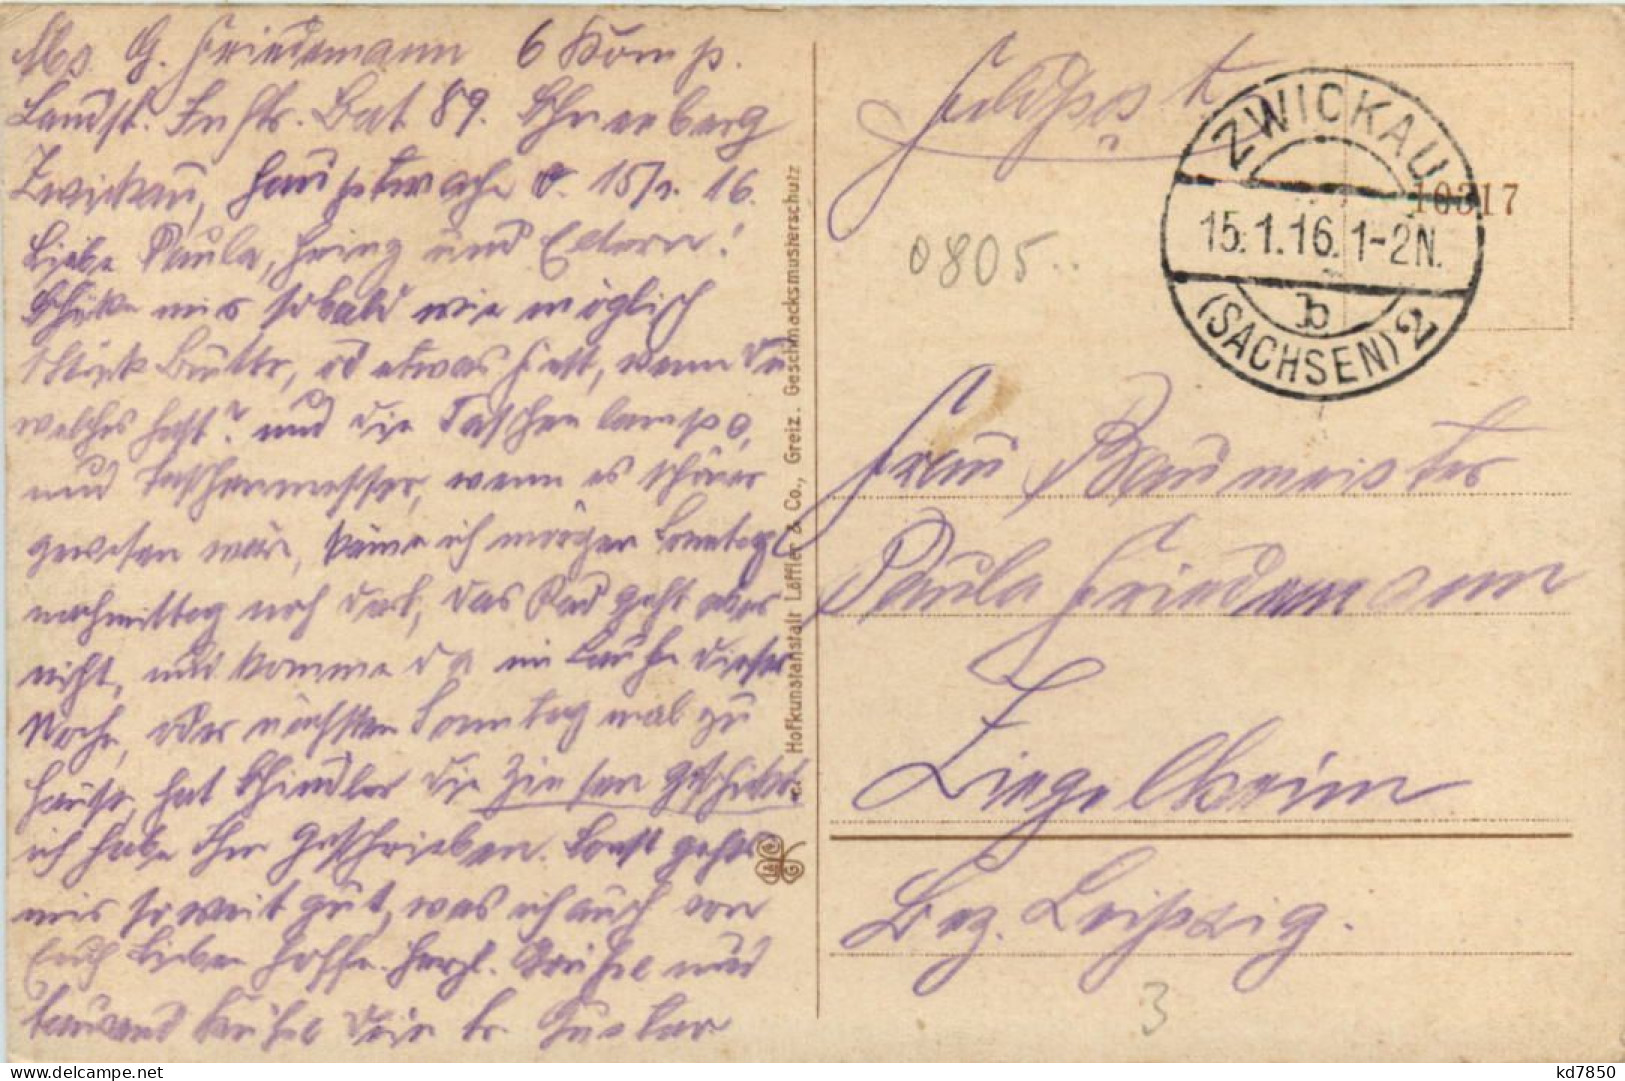 Abs. G. Friedemann 6 Komp.
Landst. Inftr. Bat 89. Schneeberg
Zwickau, Hauptwache d. 15/1. 16.
Liebe Paula, Heinz und Eltern!
Schicke mir sobald wie möglich
1 Stück Butter, od etwas Fett, wenn Du
welches hast? und die Taschenlampe,
und Taschenmesser, wenn es schöner
gewesen wäre, käme ich morgen Sonntag
nachmittag noch dort, das Rad geht aber
nicht, und komme da im Laufe dieser
Woche, oder nächsten Sonntag mal zu
Hause, hat Schindler die Zinsen geschickt.
ich habe Ihm geschrieben. Sonst gehts
mir soweit gut, was ich auch von
Euch Lieben hoffe. Herzl. Grüße und
tausend Küsse Dein tr. Gustav
Hofkunstanstalt Löffler & Co., Greiz. Geschmacksmusterschutz
Feldpost
ZWICKAU
15.1.16. 1-2N.
b
(SACHSEN) 2
10317
0805
Frau Baumeister
Paula Friedemann
Ziegelheim
Bez. Leipzig.
3
kd7850